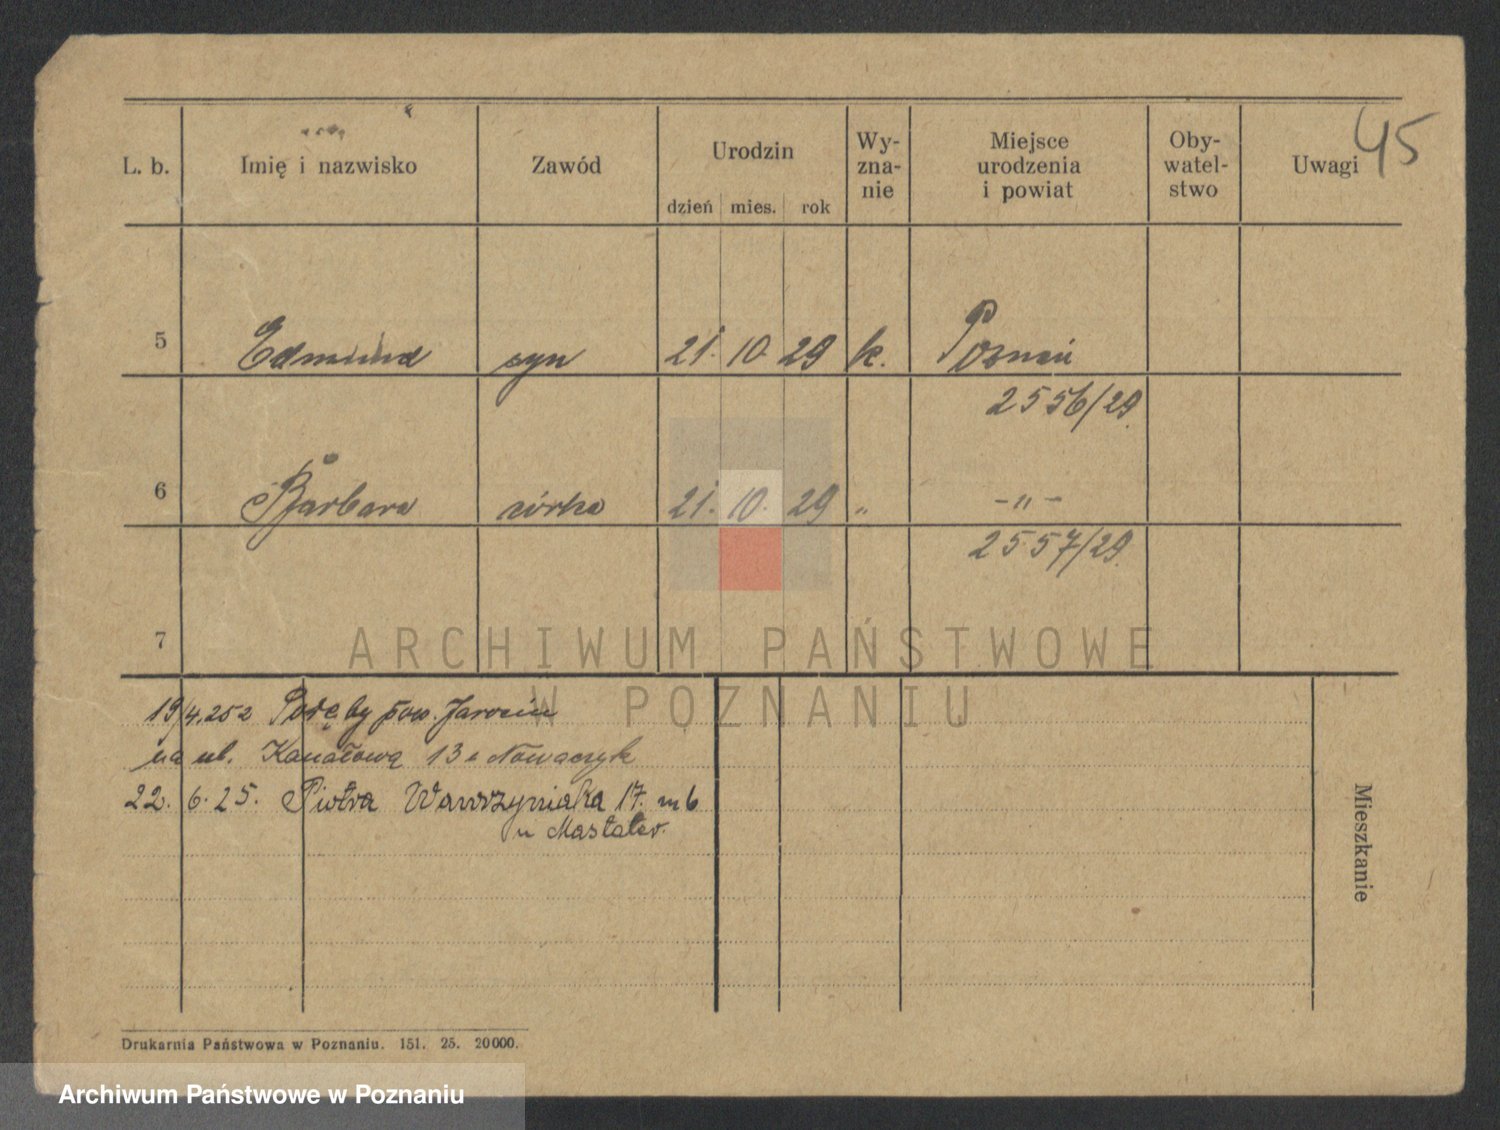 45
L. b. Imię i nazwisko Zawód Urodzin Wy-zna-nie Miejsce urodzenia i powiat Oby-watel-stwo Uwagi
dzień mies. rok
5 Edmund syn 21. 10. 29 k. Poznań
2556/29.
6 Barbara córka 21. 10. 29 „ -„-
2557/29.
7
ARCHIWUM PAŃSTWOWE
W POZNANIU
19/4.25 z Poręby pow. Jarocin
na ul. Kanałową 13 u Nowaczyk
22. 6. 25. Piotra Wawrzyniaka 17. m 6
u Mastaler.
Mieszkanie
Drukarnia Państwowa w Poznaniu. 151. 25. 20000.
Archiwum Państwowe w Poznaniu